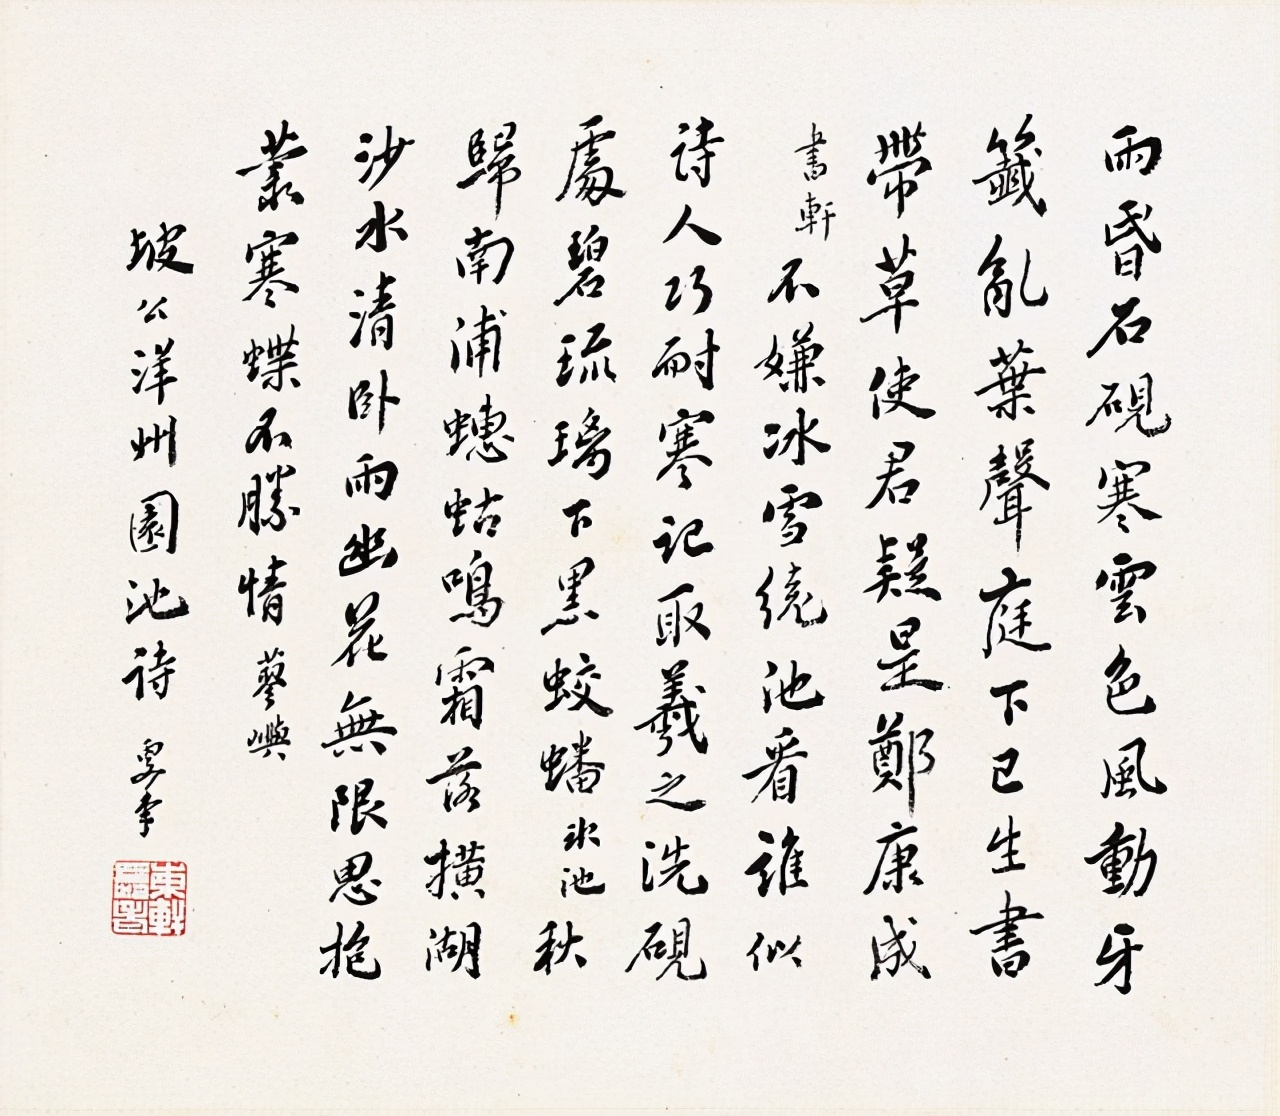 雨昏石硯寒雲色風動牙
籤亂葉聲庭下已生書
帶草使君疑是鄭康成
書軒不嫌冰雪繞池看誰似
詩人巧耐寒記取羲之洗硯
處碧琉璃下黑蛟蟠冰池秋
歸南浦蟪蛄鳴霜落橫湖
沙水清卧雨幽花無限思抱
叢寒蝶不勝情蓼嶼
坡公洋州園池詩